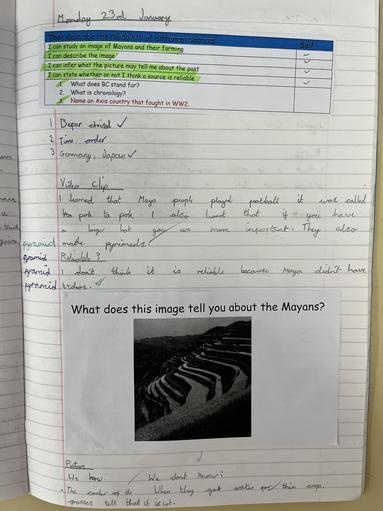 Monday 23rd January
I can study an image of Mayans and their farming
I can describe the image
I can infer what the picture may tell me about the past
I can state whether or not I think a source is reliable
1. What does BC stand for?
2. What is chronology?
3. Name an Axis country that fought in WW2.
1 Befor christ ✓
2 Time order
3 Germany, Japan ✓
Video Clip
I learned that Maya people played football it was called
Pok ta pok. I also learnt that if you have
a bigger hat you are more important. They also
pyramid made pyrimeds.
pyramid Reliable?
pyramid I don't think it is reliable because Maya didn't have
pyramid videos.
What does this image tell you about the Mayans?
Picture
We know: We don't know:
The of the When they get water for their crop.
grasses tell that it is hot.